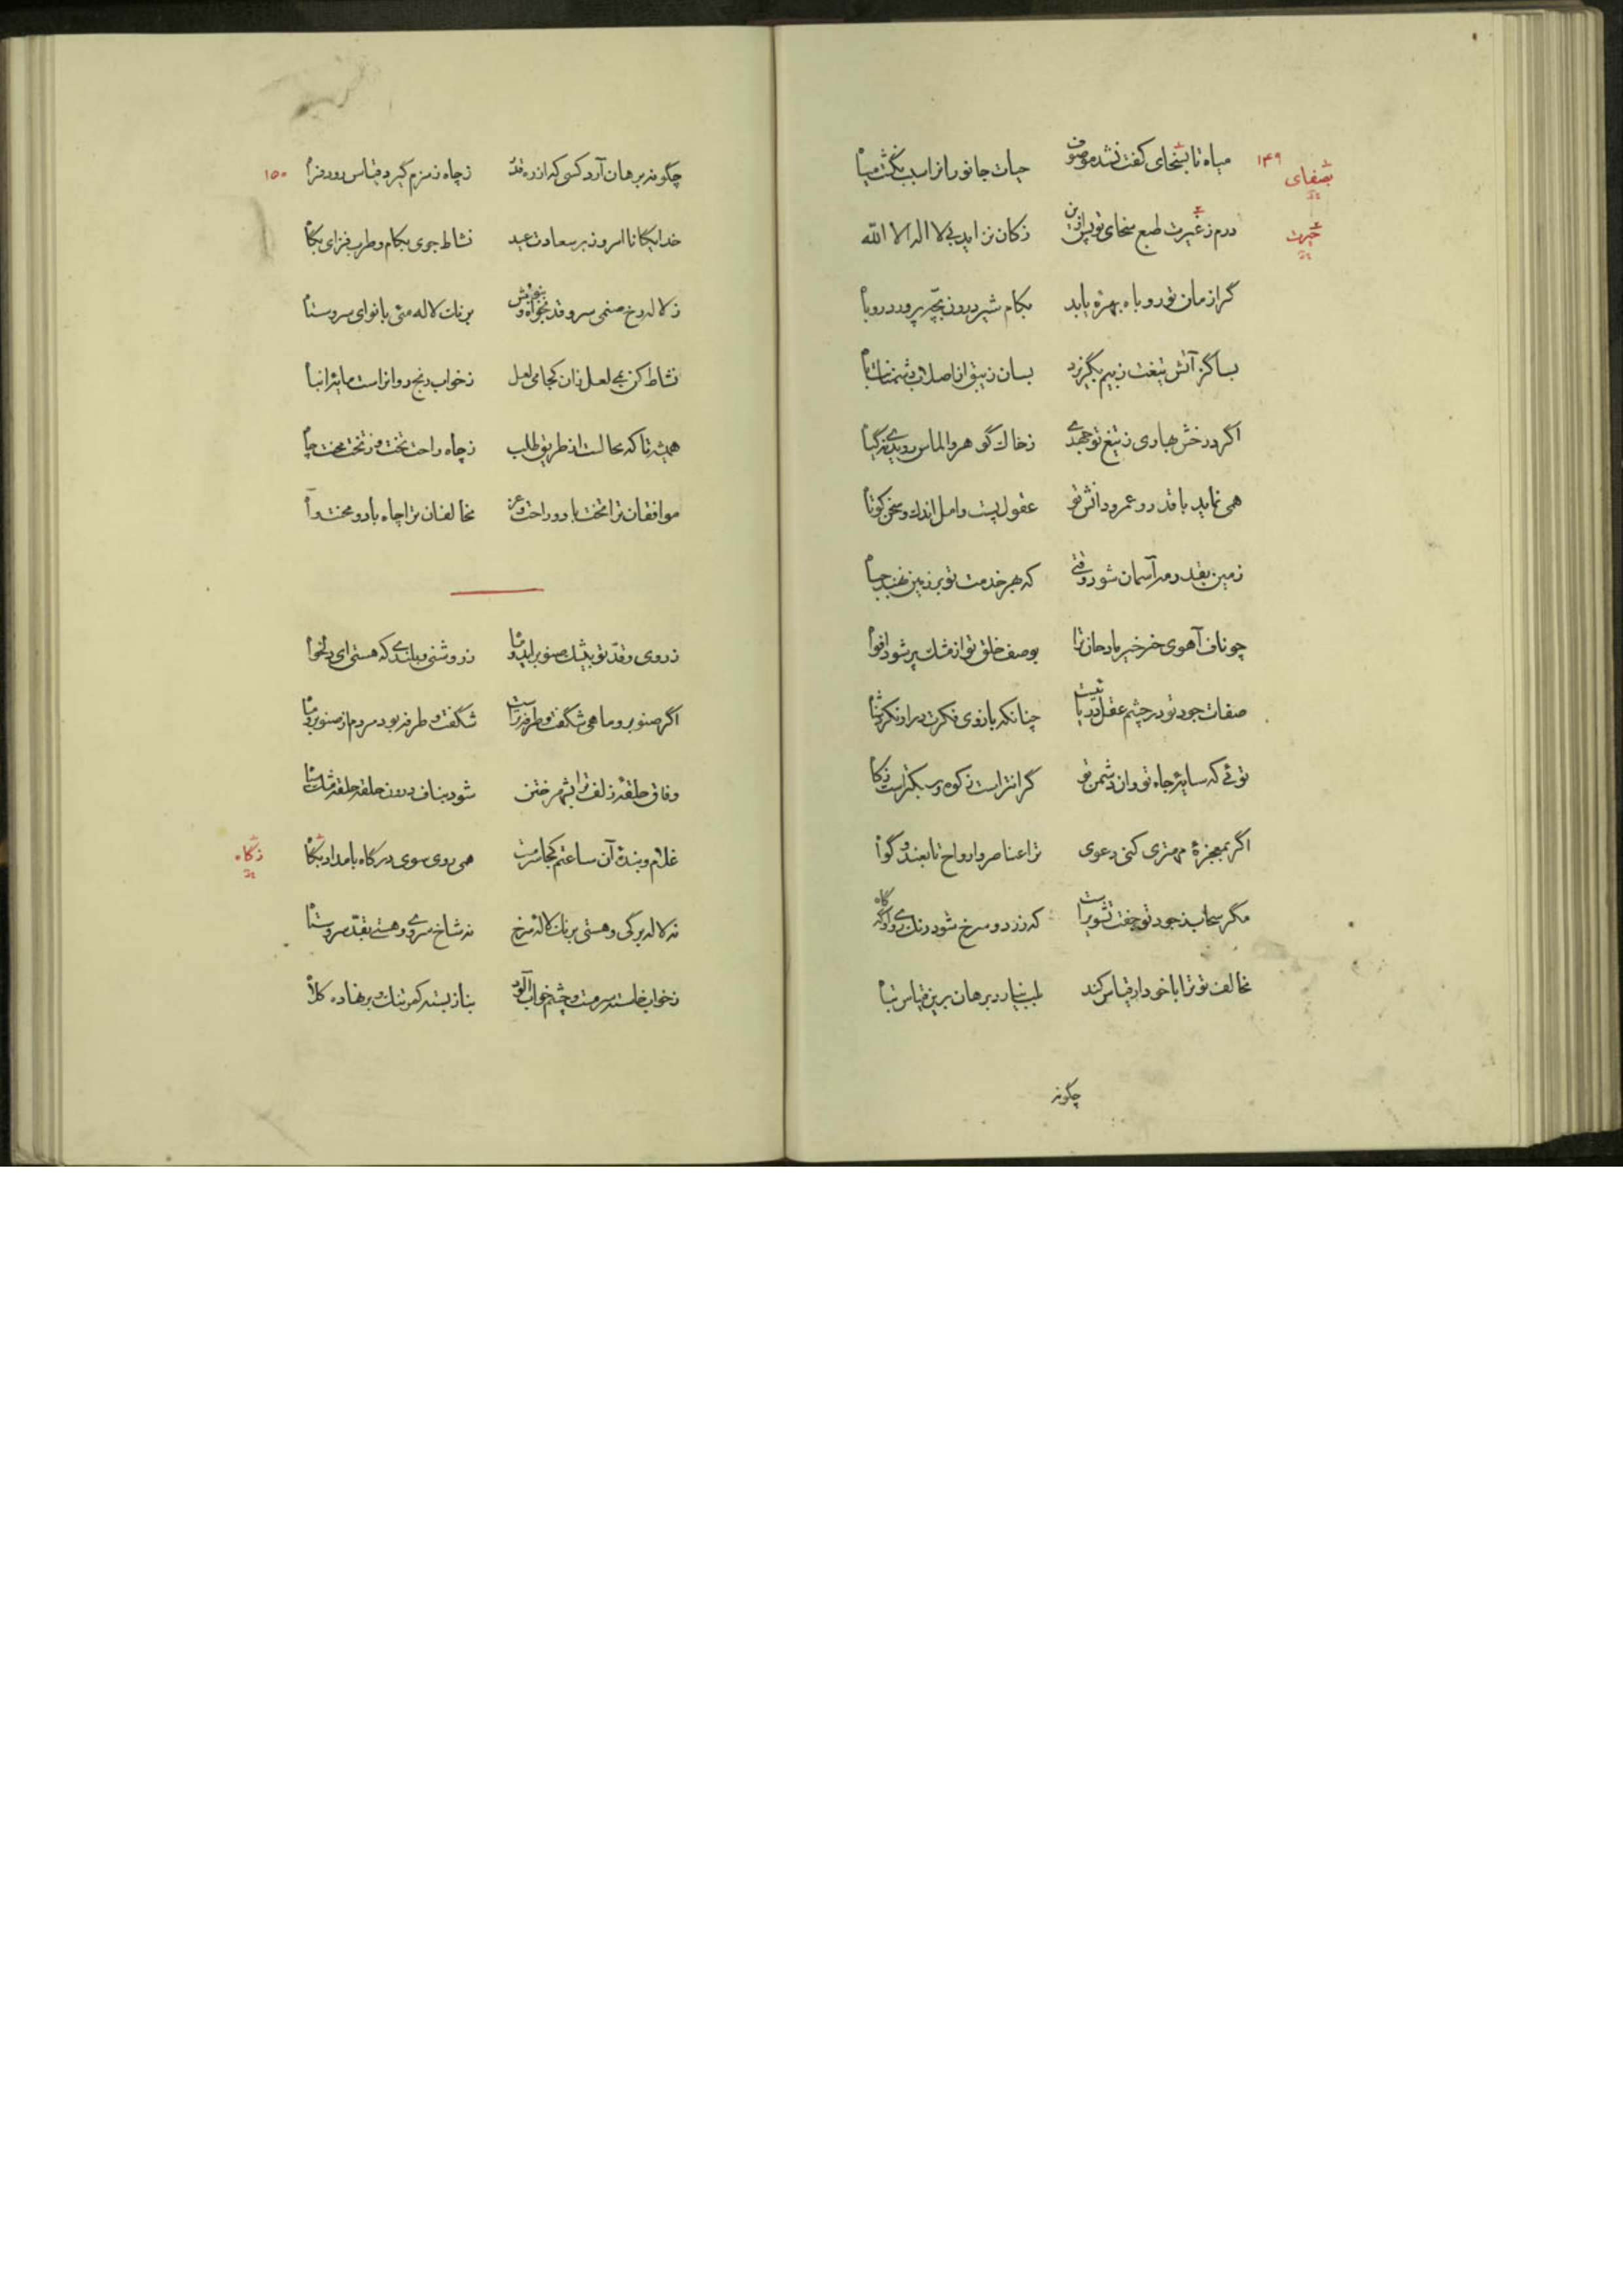 میاه تا بسخای کفت نشد موصوف حیات جانور انرا سبب نگشت میاه
۱۴۹
بصفای
درم ز غیرت طبع سخای تو پس ازین ز کان نزاید بی لا اله الا الله
حیرت
گر از مان تو روباه بهره یابد بکام شیر درون بچه پرورد روباه
بسا کز آتش تیغت ز بیم بگریزد بسان زیبق از اصلاب دشمنانت باه
اگر درخش بهاری ز تیغ تو جهدی ز خاک گوهر و الماس رویدی نه گیاه
همی نماید با قدر و عمر و دانش تو عقول پست و امل اندک و سخن کوتاه
زمین بقدر مه آسمان شود وقتی که بهر خدمت تو بر زمین نهند جباه
چو ناف آهوی خرخیز مادحان ترا بوصف خلق تو از مشک پر شود افواه
صفات جود تو در چشم عقل چنانکه بازوی فکرت
توئی که سایهٔ جاه تو و ان دشمن تو گرانتر است ز کوه و سبکتر است ز کاه
اگر بمعجزهٔ مهتری کنی دعوی ترا عناصر و ارواح تابعند و گواه
مگر سحاب ز جود تو جفت تشویر است که زرد و سرخ شود رنگ
مخالف تو ترا با خود ار قیاس کند بلب نیارد برهان برین قیاس تباه
چگونه
چگونه برهان آرد کسی که از ره قدر ز چاه زمزم گیرد قیاس رود فراه
۱۵۰
خدایگانا امروز بر سعادت عید نشاط جوی بکام و طرب فزای بگاه
ز لاله رخ صنمی سرو قد بخواه و بنوش برنگ لاله میی با نوای سروستاه
نشاط کن بمی لعل زان کجا می لعل ز خواب رنج روانراست مایهٔ انباه
همیشه تا که بحالت از طریق طلب ز چاه راحت تخت و ز تخت محنت چاه
موافقان ترا تخت باد و راحت و عز مخالفان ترا چاه باد و محنت و آه
ز روی و قد تو بیشک صنوبر آید و ماه ز روشنی و بلندی که هستی ای دلخواه
اگر صنوبر و ماهی شگفت و طرفه تراست شگفت و طرفه بود مردم از صنوبر و ماه
وفاق حلقهٔ زلف ترا بشهر ختن شود بناف درون حلقه حلقه مشک سیاه
غلام و بندهٔ آن ساعتم کجا سرمست همی روی سوی درگاه بامداد بگاه
زکاه
نه لاله برگی و هستی برنگ لاله سرخ نه شاخ سروی و هستی بقد سروستاه
ز خواب خاسته سرمست و چشم خواب آلود بناز بسته کمر تنگ و بر نهاده کلاه